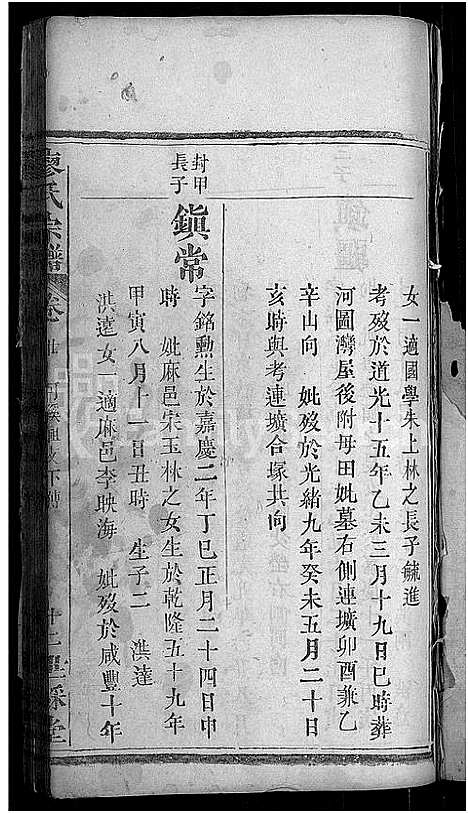 女一適國學朱上林之長子毓進
考歿於道光十五年乙未三月十九日巳時葬
河圖灣屋後附母田妣墓右側連壙卯酉兼乙
辛山向　妣歿於光緒九年癸未五月二十日
亥時與考連壙合塚共向
封甲長子
鎮常
字銘勲生於嘉慶二年丁巳正月二十四日申
時　妣麻邑宋玉林之女生於乾隆五十九年
甲寅八月十一日丑時　生子二　洪達
洪遠女一適麻邑李映海　妣歿於咸豐十年
廖氏宗譜
卷